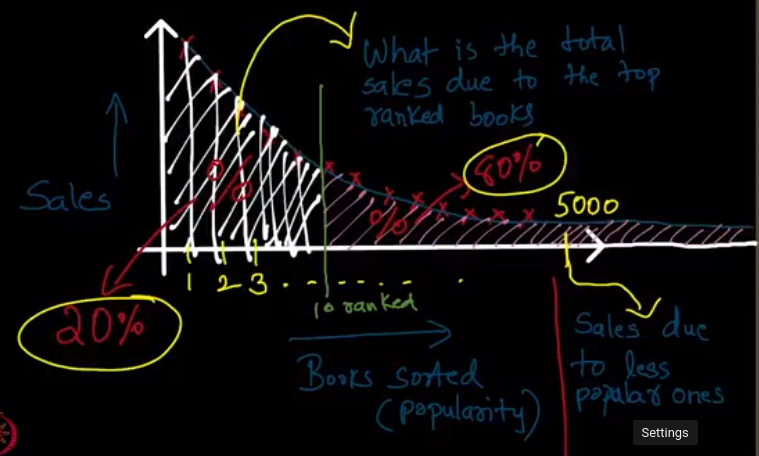 What is the total
sales due to the top
ranked books
80%
%
%
Sales
5000
1 2 3 . - - - - - - .
10 ranked
20%
Books sorted
(popularity)
Sales due
to less
popular ones
Settings